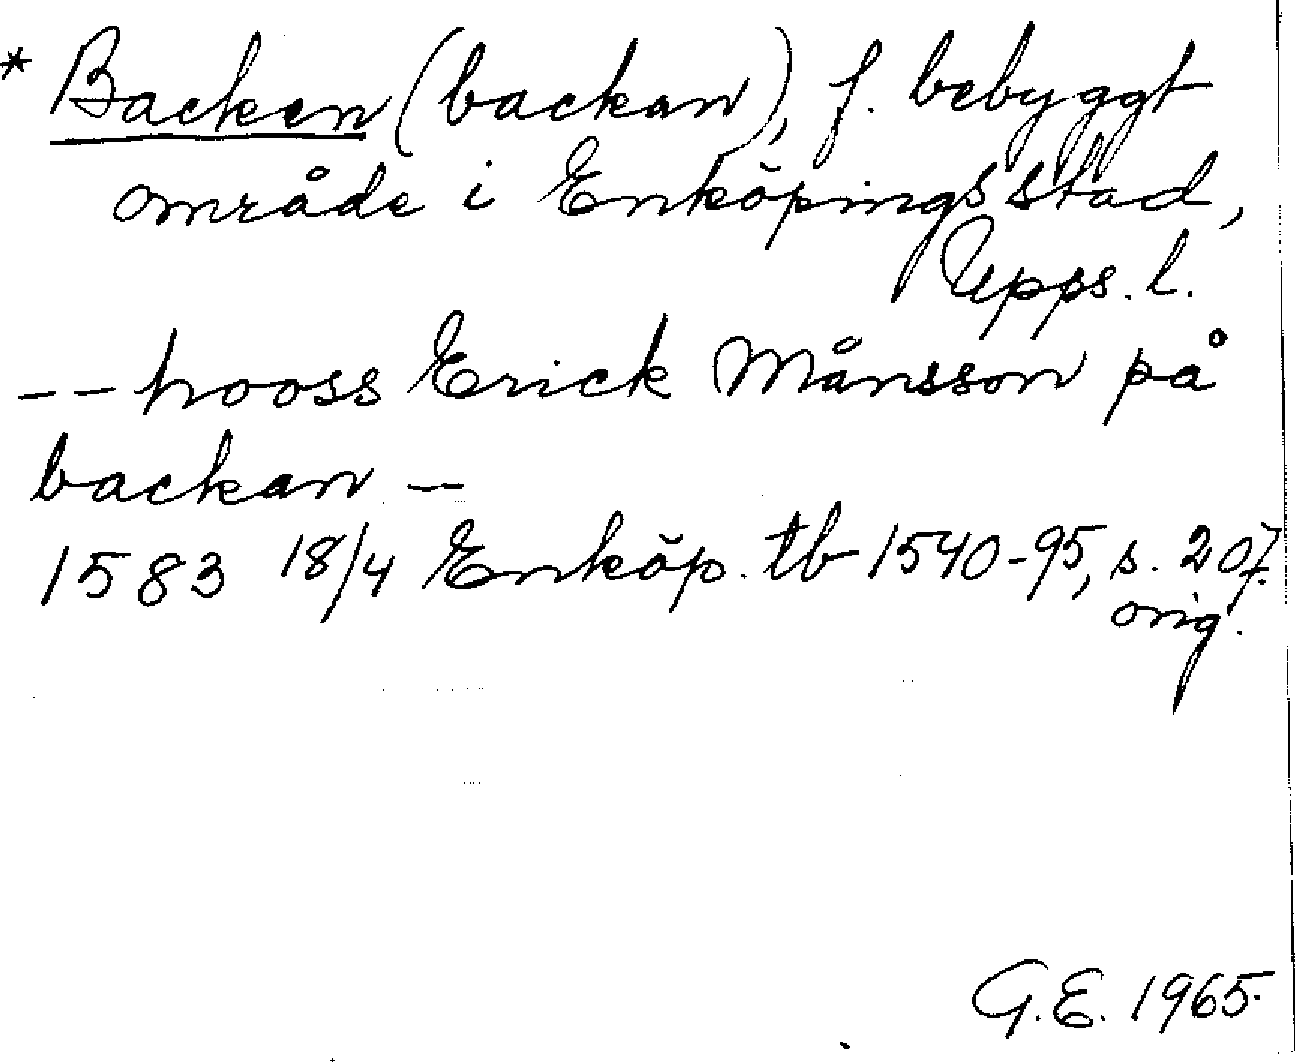 * Backen (backan), f. bebyggt
område i Enköpings stad,
Upps. l.
-- hooss Erick Månsson på
backan --
1583 18/4 Enköp. tb 1540-95, s. 207.
orig.
G.E. 1965.